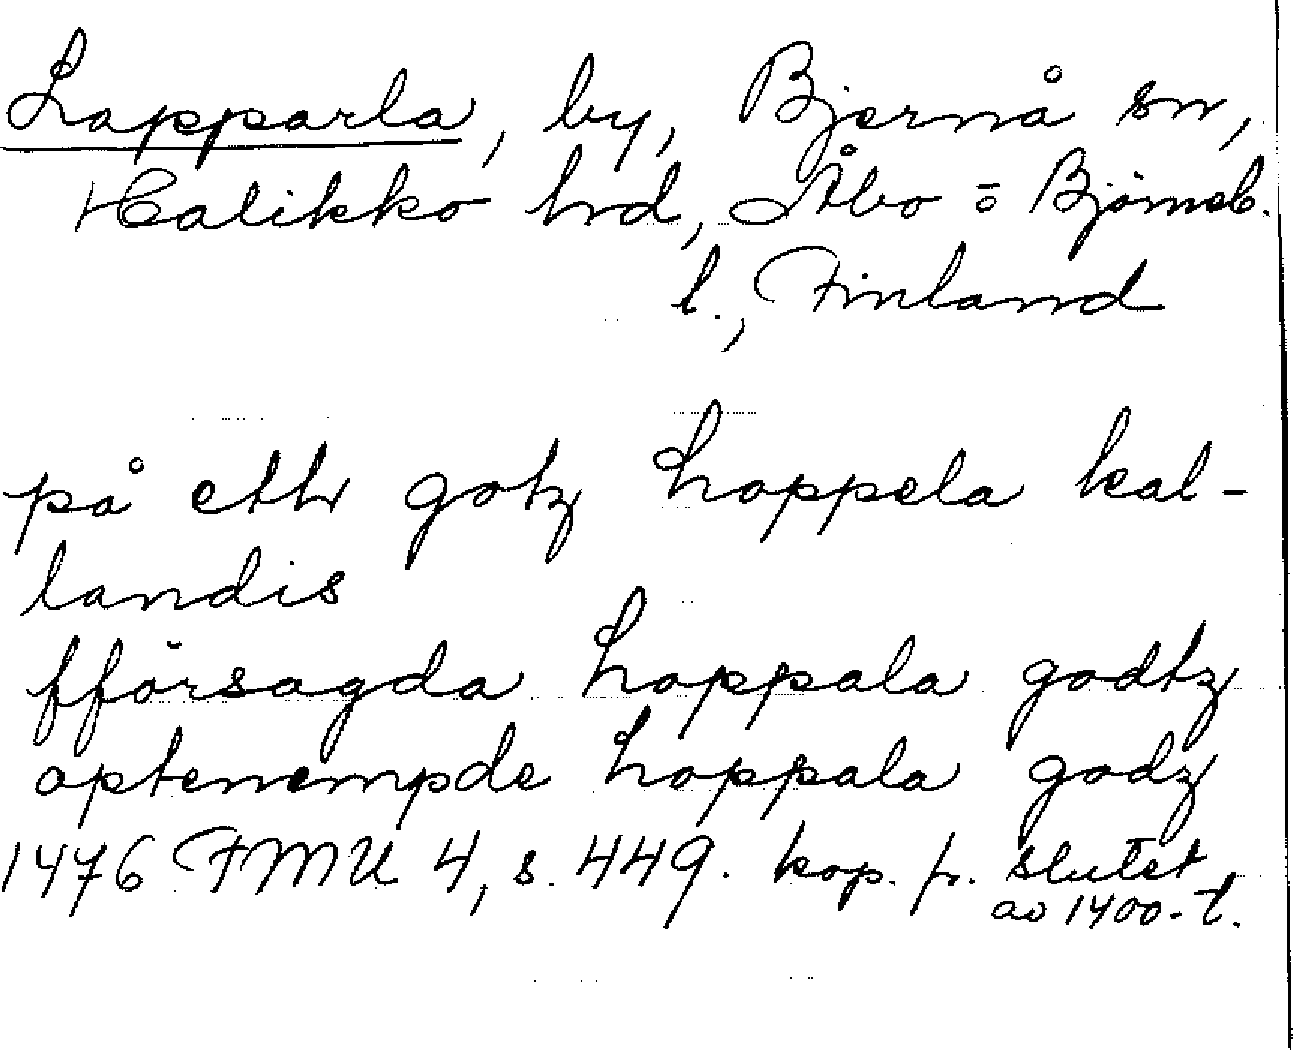 Lapparla, by, Bjernå sn,
Halikko hrd, Åbo = Björneb.
l., Finland
på etth gotz Lappela kal-
landis
fförsagda Lappala godtz
optenempde Lappala godz
1476 FMU 4, s. 449. kop. fr. slutet
av 1400-t.